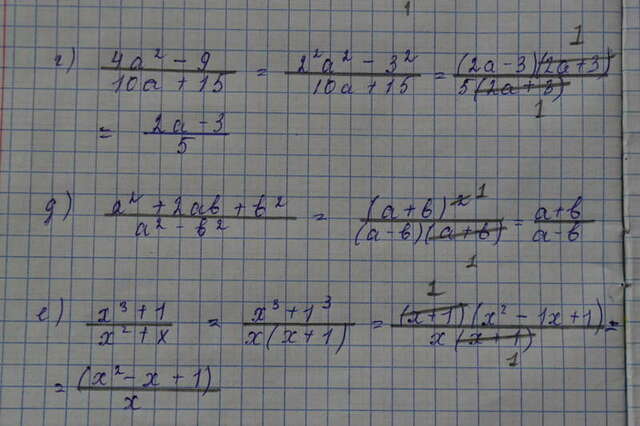 г) (4a² - 9)/(10a + 15) = (2²a² - 3²)/(10a + 15) = ((2a-3)(2a+3))/(5(2a+3)) 1 1
= (2a-3)/5
д) (a² + 2ab + b²)/(a² - b²) = ((a+b)²)/((a-b)(a+b)) 1 1 = (a+b)/(a-b)
е) (x³+1)/(x²+x) = (x³+1³)/(x(x+1)) = ((x+1)(x² - 1x + 1))/(x(x+1)) 1 1 =
= (x² - x + 1)/x